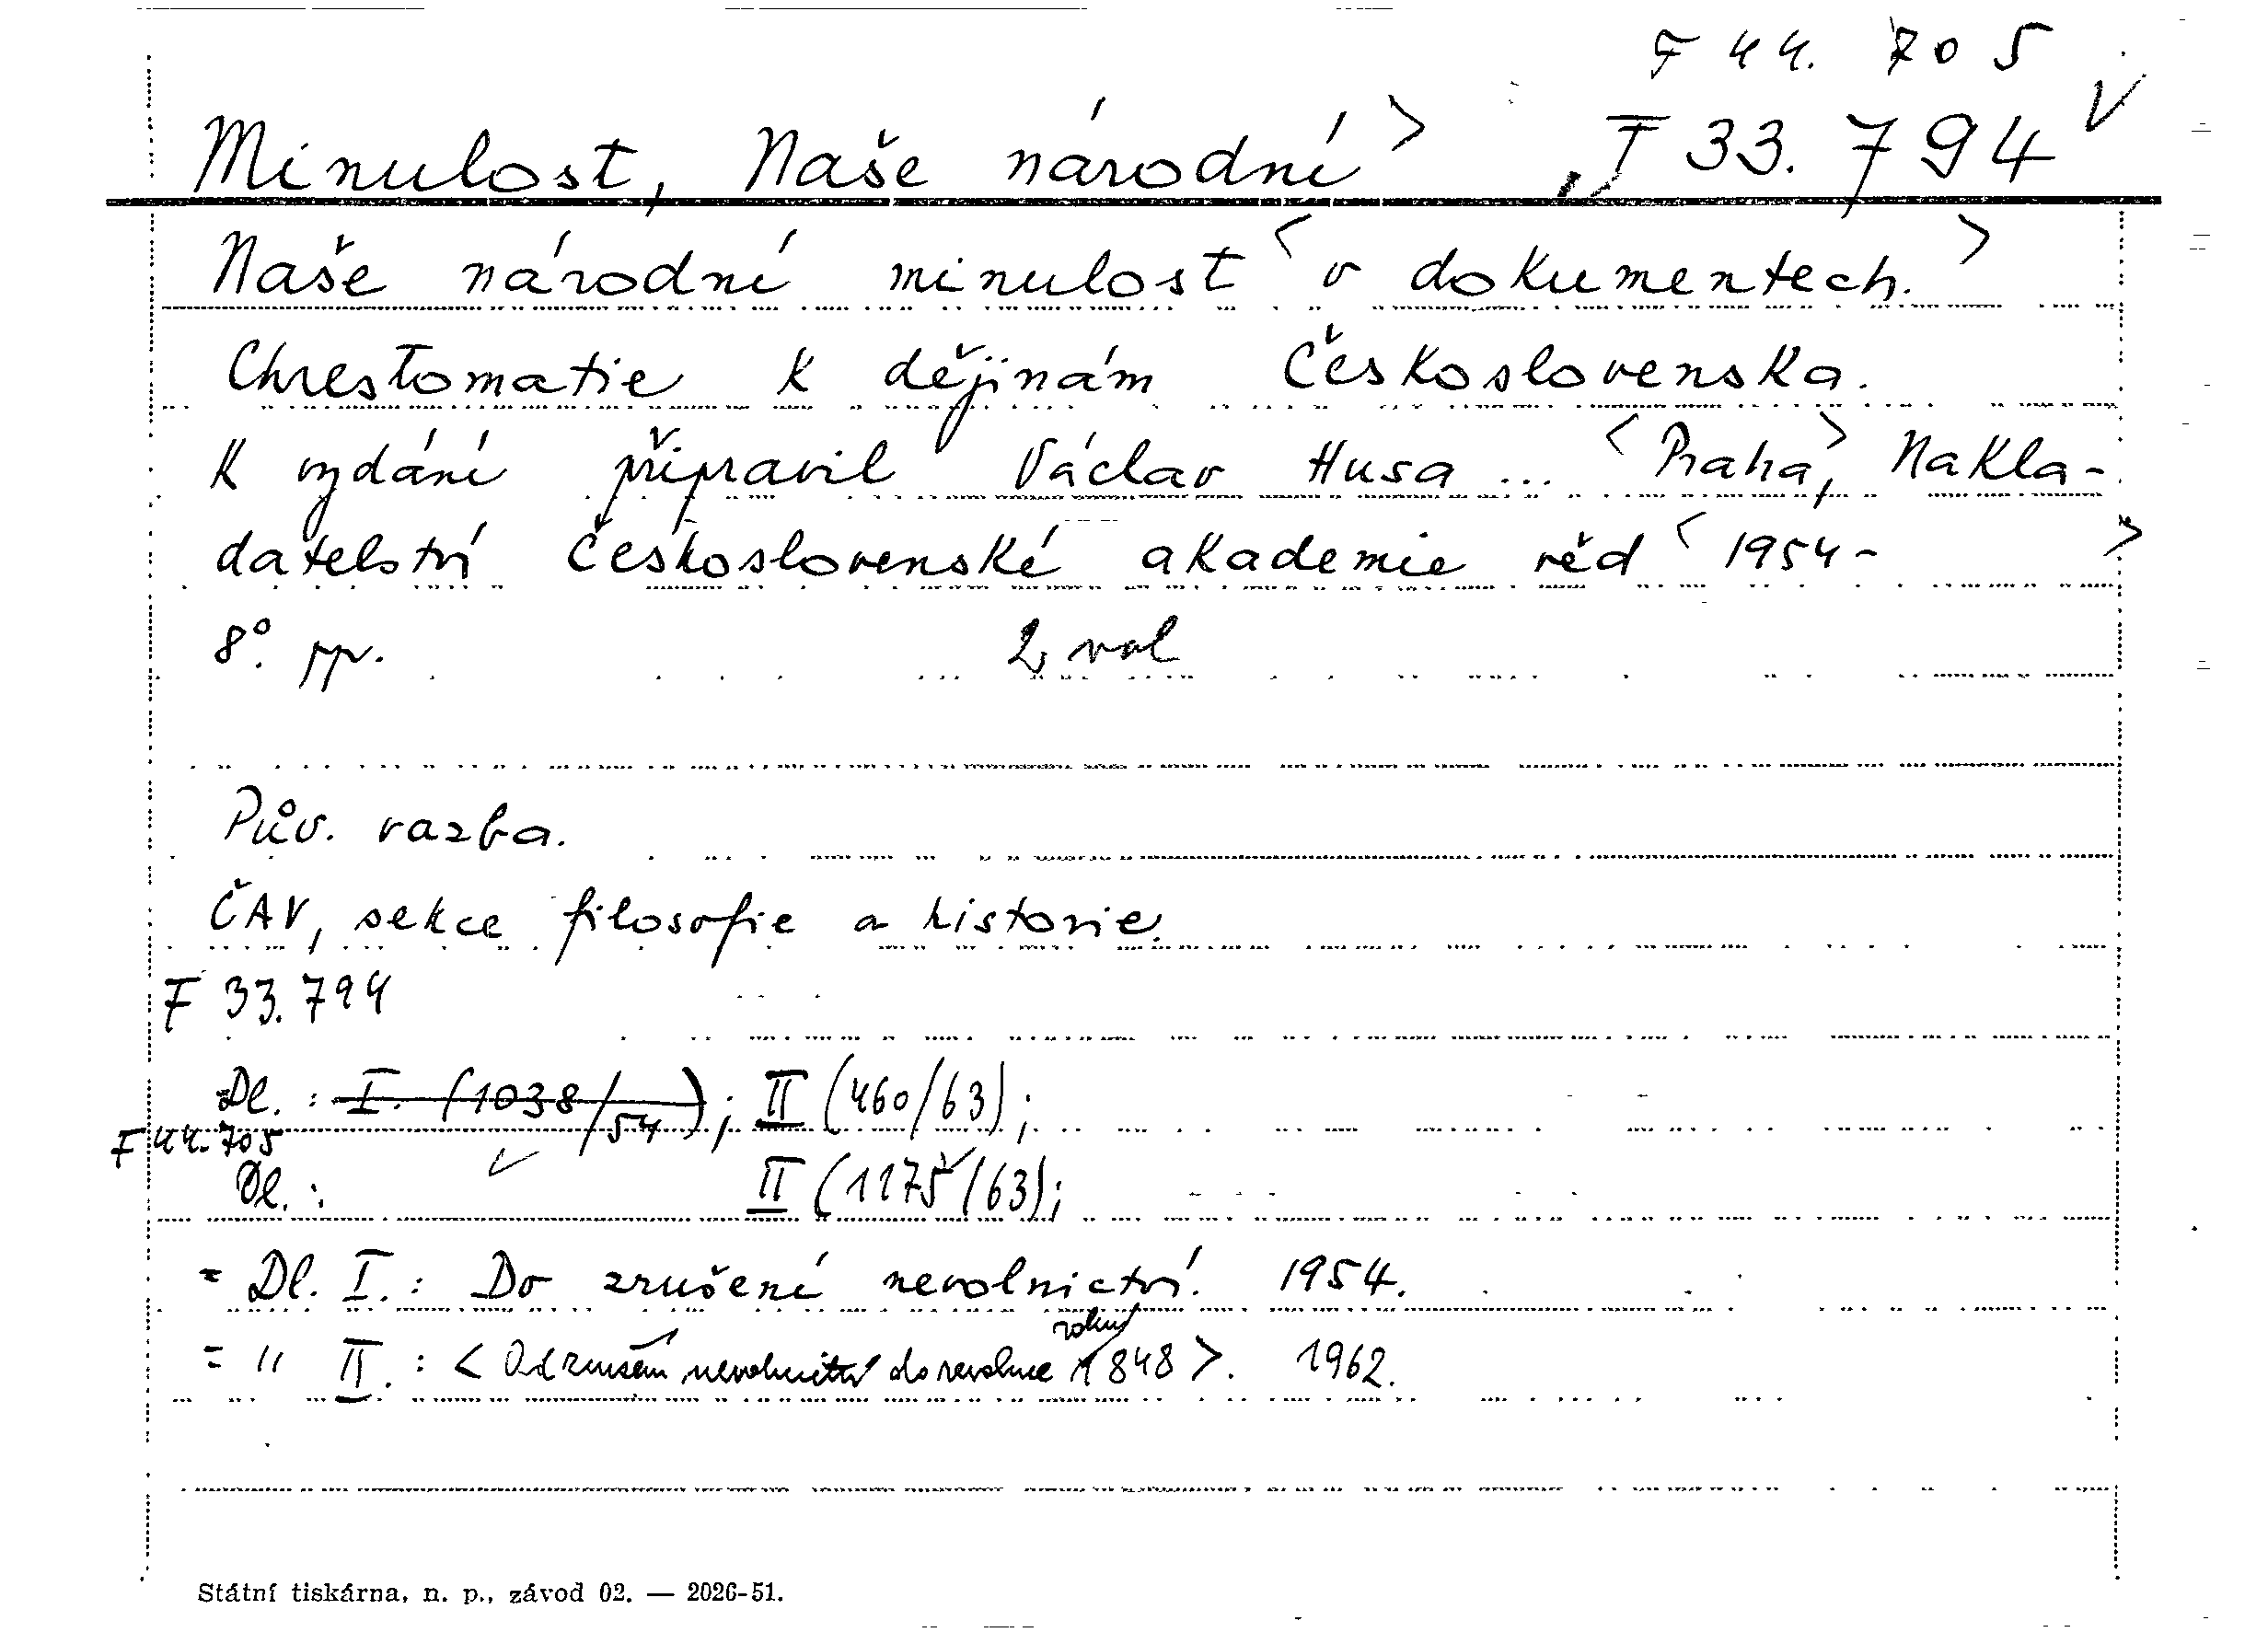 F 44. 705
Minulost, Naše národní > F 33. 794 V
Naše národní minulost < v dokumentech. >
Chrestomatie k dějinám Československa.
K vydání připravil Václav Husa ... < Praha >, Nakla-
datelství Československé akademie věd < 1954- >
8°. pp. 2 vol
Pův. vazba.
ČAV, sekce filosofie a historie.
F 33.794
Dl. : I. (1038/54); II (460/63);
F 44.705
Dl. : II (1175/63);
= Dl. I. : Do zrušení nevolnictví. 1954.
= " II. : < Od zrušení nevolnictví do revoluce roku 1848 >. 1962.
Státní tiskárna, n. p., závod 02. — 2026-51.